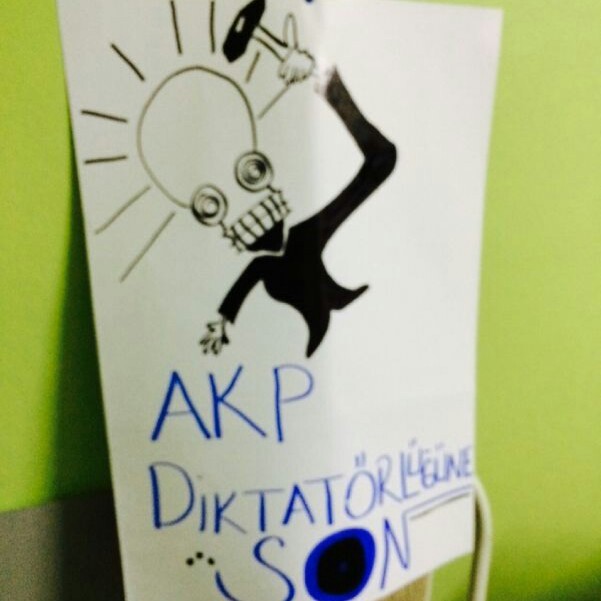 AKP
DİKTATÖRLÜĞÜNE
SON